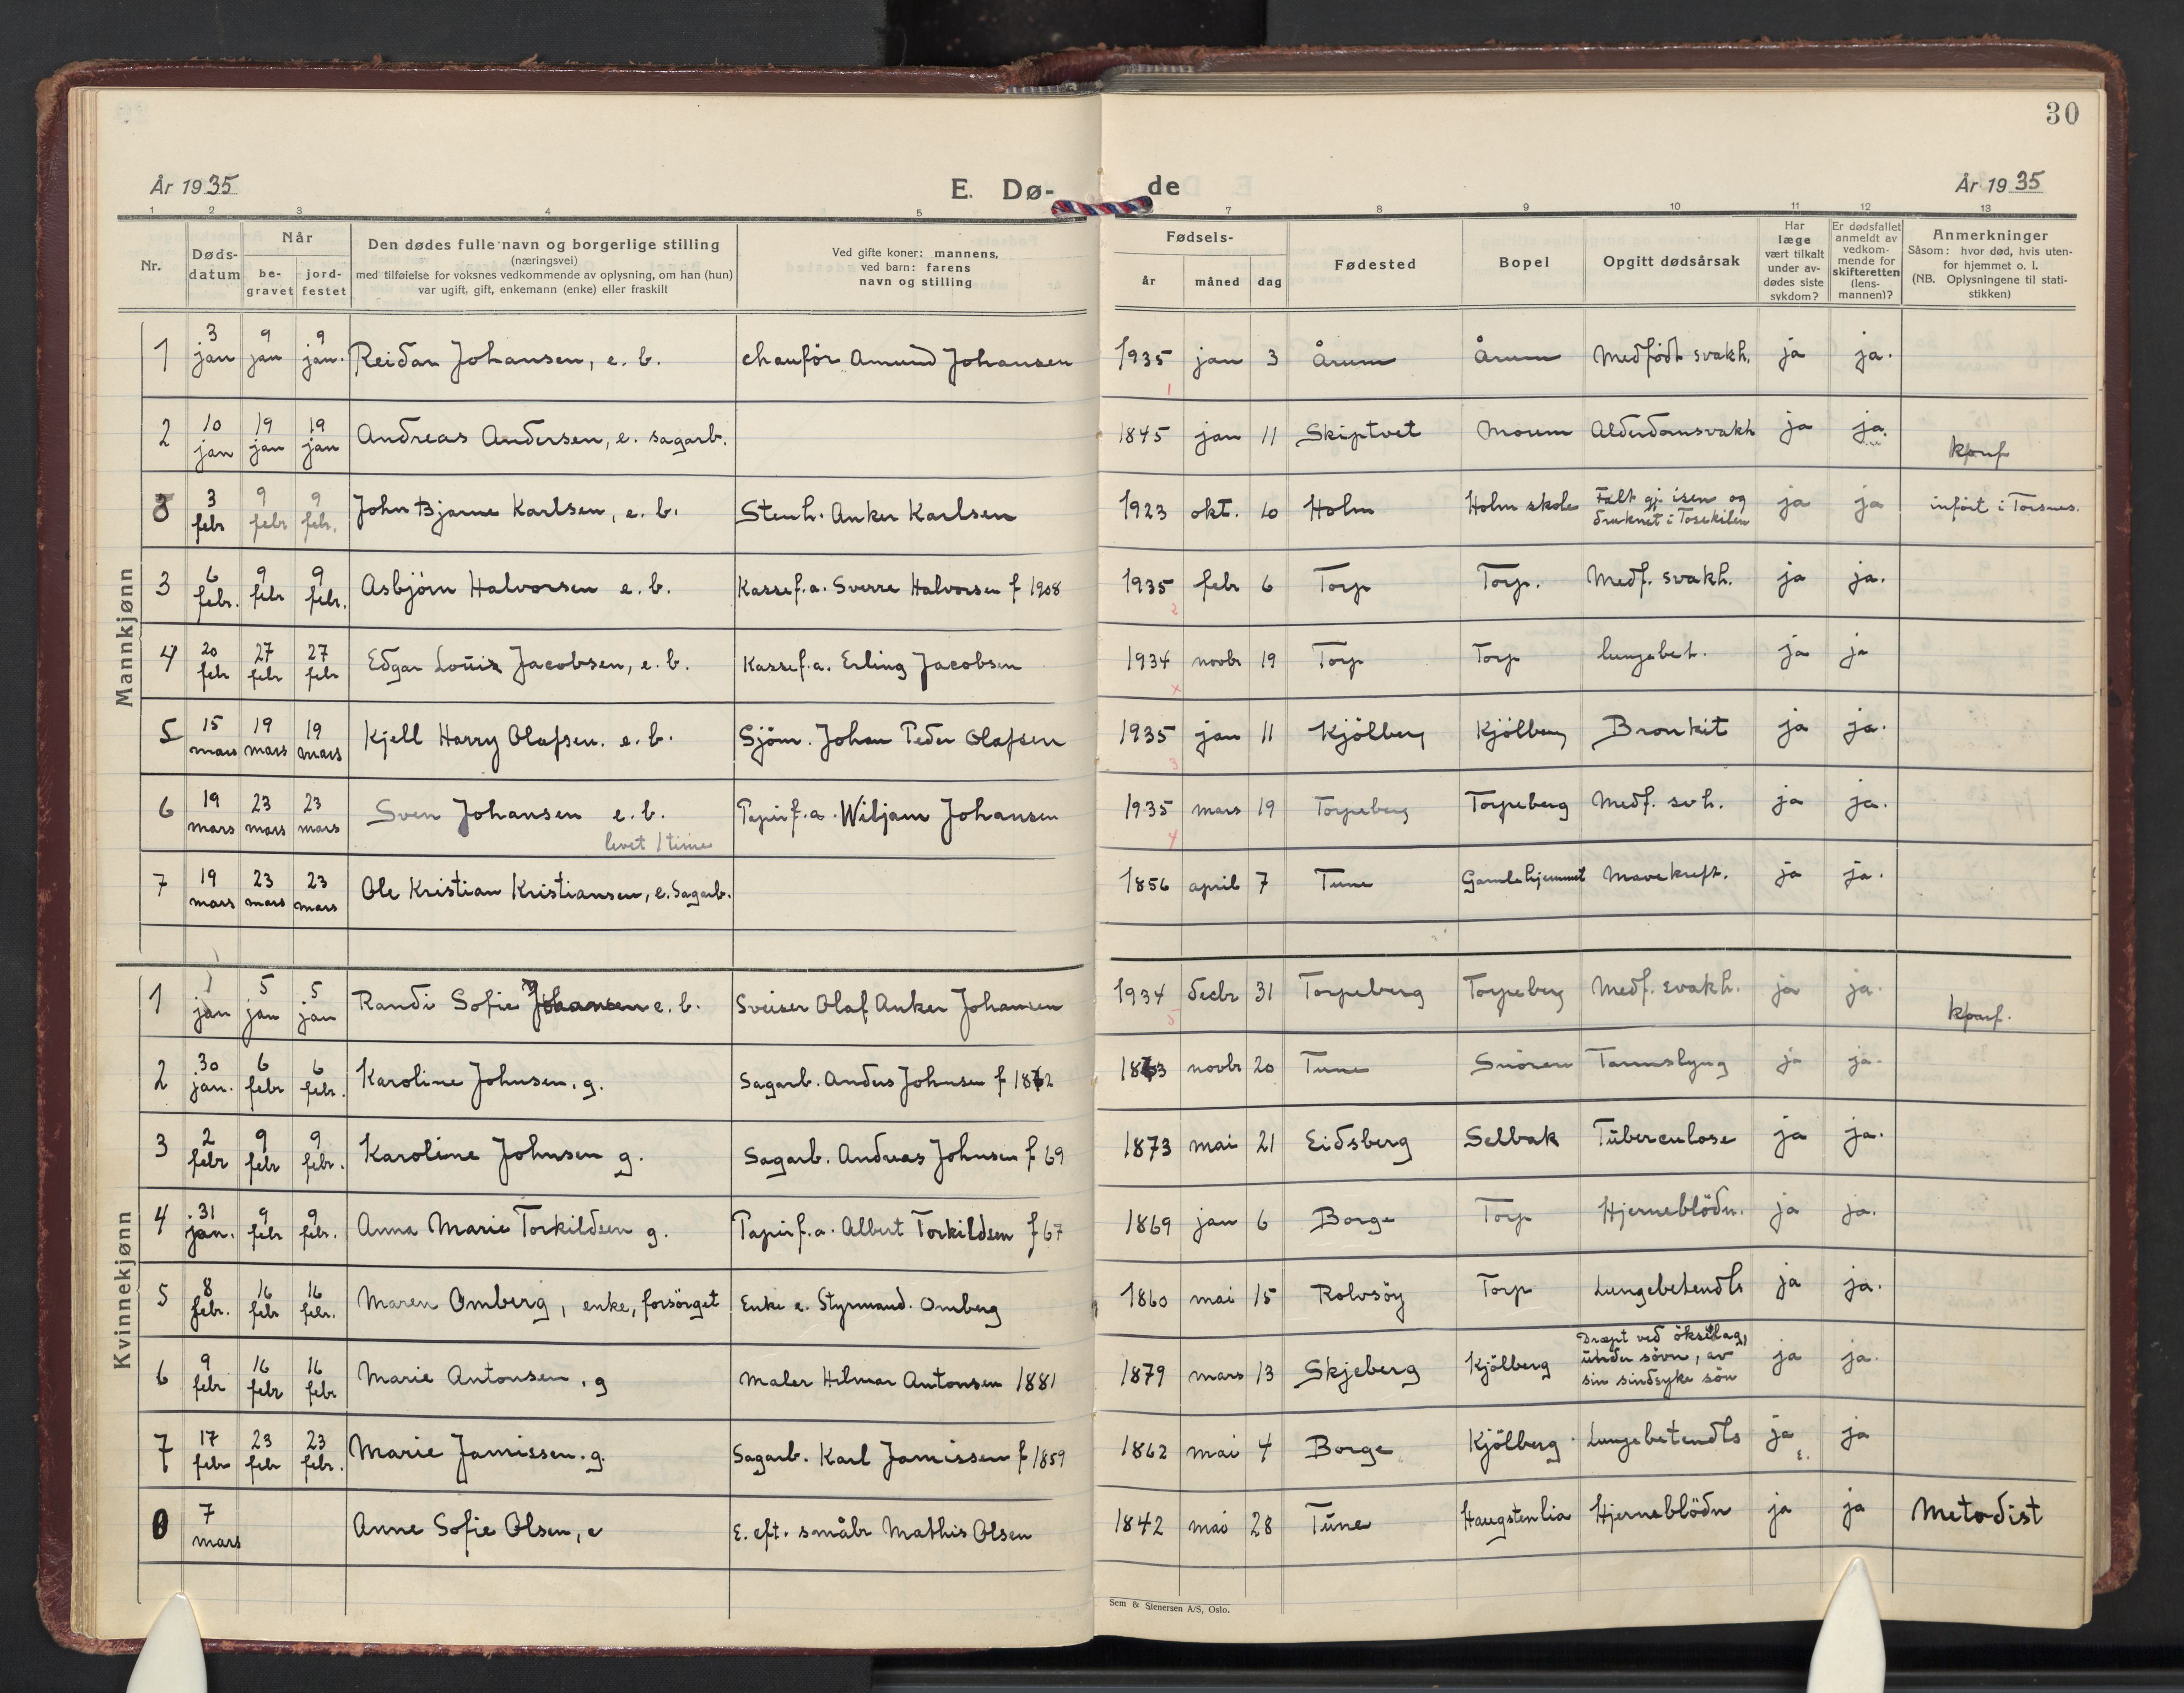 30
År 1935 E. Dø- de År 1935
1 2 3 4 5 7 8 9 10 11 12 13
Nr. Døds-datum Når be-gravet jord-festet Den dødes fulle navn og borgerlige stilling (næringsvei) med tilføielse for voksnes vedkommende av oplysning, om han (hun) var ugift, gift, enkemann (enke) eller fraskilt Ved gifte koner: mannens, ved barn: farens navn og stilling Fødsels- år måned dag Fødested Bopel Opgitt dødsårsak Har læge vært tilkalt under av-dødes siste sykdom? Er dødsfallet anmeldt av vedkom-mende for skifteretten (lens-mannen)? Anmerkninger Såsom: hvor død, hvis uten-for hjemmet o. l. (NB. Oplysningene til stati-stikken)
Mannkjønn
1 3 jan 9 jan 9 jan. Reidar Johansen, e. b. chauför Amund Johansen 1935 jan 3 Årum Årum Medfödt svakh. ja ja.
1
2 10 jan 19 jan 19 jan Andreas Andersen, e. sagarb. 1845 jan 11 Skiptvet Moum Alderdomsvakh ja ja.
0 3 febr 9 febr 9 febr. John Bjarne Karlsen, e. b. Stenh. Anker Karlsen 1923 okt. 10 Holm Holm skole Falt gj. isen og druknet i Tosekilen ja ja infört i Torsnes.
3 6 febr. 9 febr 9 febr. Asbjörn Halvorsen e. b. Kassef.a. Sverre Halvorsen f 1908 1935 febr 6 Torp Torp. Medf. svakh. ja ja.
2
4 20 febr 27 febr 27 febr Edgar Louis Jacobsen, e. b. Kassef.a. Erling Jacobsen 1934 novbr 19 Torp Torp lungebet. ja ja
x
5 15 mars 19 mars 19 mars Kjell Harry Olafsen. e. b. Sjöm. Johan Peder Olafsen 1935 jan 11 Kjölberg Kjölberg Bronkit ja ja.
3
6 19 mars 23 mars 23 mars Sven Johansen e. b. Papirf.a. Wiljam Johansen 1935 mars 19 Torpeberg Torpeberg Medf. svh. ja ja.
levet 1 time
4
7 19 mars 23 mars 23 mars Ole Kristian Kristiansen, e. Sagarb. 1856 april 7 Tune Gamlehjemmet Mavekreft. ja ja.
Kvinnekjønn
1 1 jan 5 jan 5 jan Randi Sofie Johansen e. b. Sveiser Olaf Anker Johansen 1934 decbr 31 Torpeberg Torpeberg Medf. svakh. ja ja.
5
2 30 jan. 6 febr 6 febr. Karoline Johnsen. g. Sagarb. Anders Johnsen novbr 20 Tune Tarmslyng ja ja.
3 2 febr 9 febr 9 febr. Karoline Johnsen g. Sagarb. Andreas Johnsen f 69 1873 mai 21 Eidsberg Selbak Tuberculose ja ja.
4 31 jan. 9 febr 9 febr. Anna Marie Torkildsen g. Papirf.a. Albert Torkildsen f 67 1869 jan 6 Borge Torp Hjerneblödn. ja ja.
5 8 febr. 16 febr 16 febr. Maren Omberg, enke, forsörget Enke e. Styrmand. Omberg 1860 mai 15 Rolvsöy Torp Lungebetendls ja ja.
6 9 febr 16 febr 16 febr Marie Antonsen, g Maler Hilmar Antonsen 1881 1879 mars 13 Skjeberg Kjölberg Dræpt ved ökseslag, under sövn, av sin sindsyke sön ja ja.
7 17 febr 23 febr 23 febr. Marie Jamissen. g. Sagarb. Karl Jamissen f 1859 1862 mai 4 Borge Kjölberg Lungebetendls ja ja
0 7 mars Anne Sofie Olsen, e E. eft. småbr Mathis Olsen 1842 mai 28 Tune Haugstenlia Hjerneblödn ja ja Metodist
Sem & Stenersen A/S, Oslo.